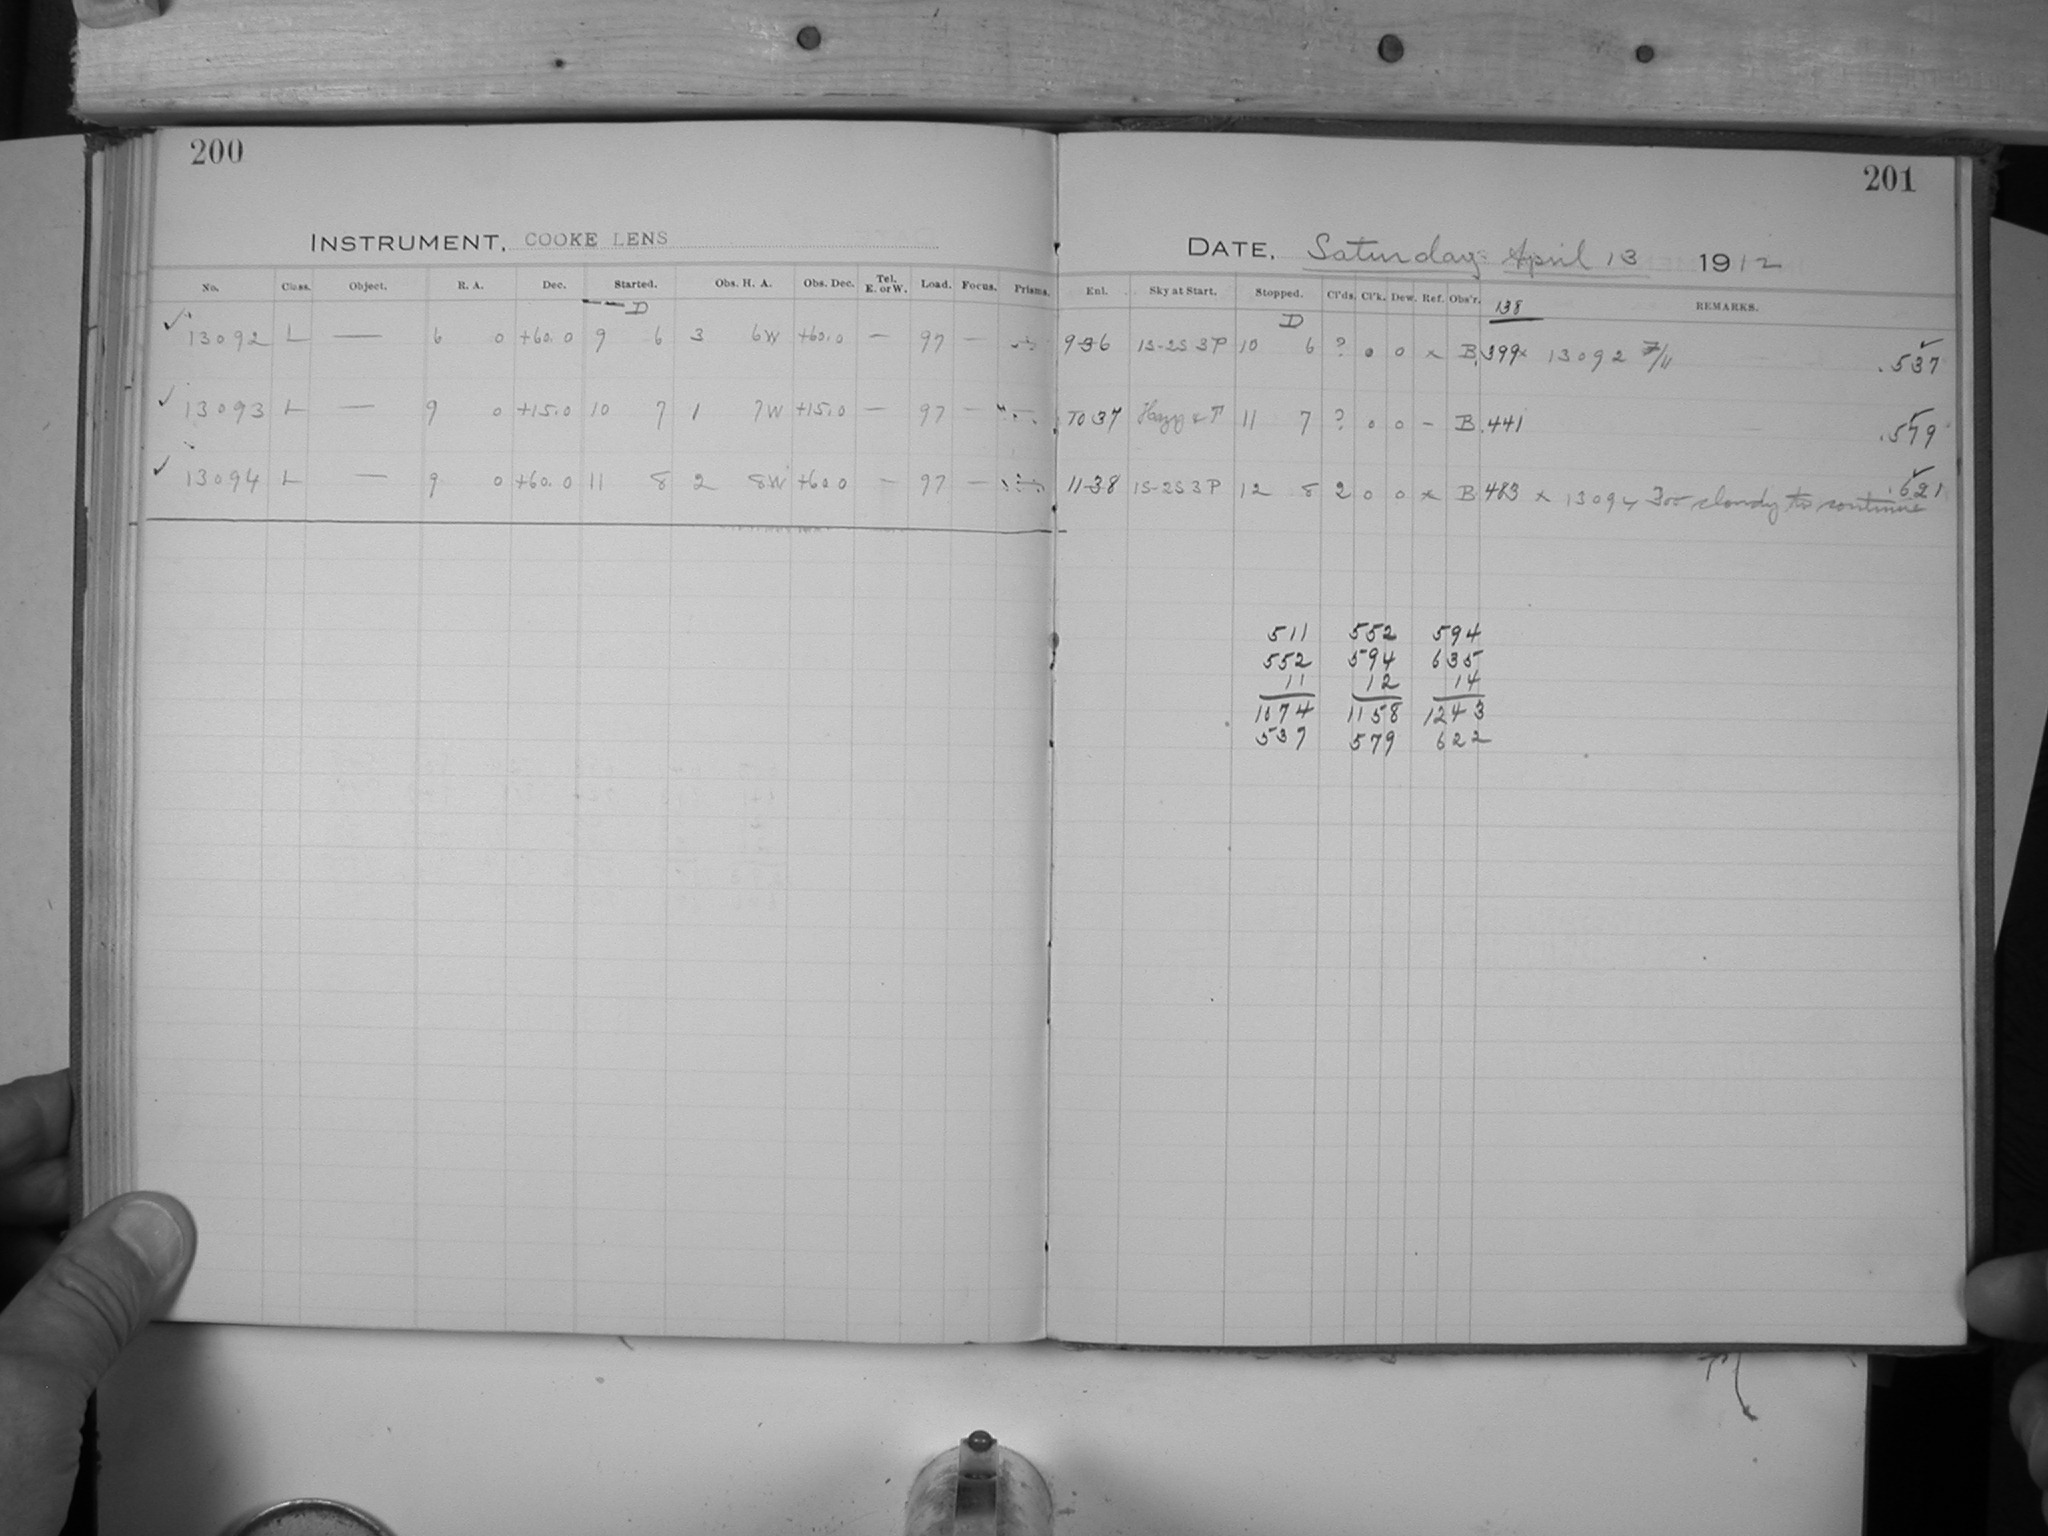 200
INSTRUMENT, COOKE LENS
No. Class. Object. R. A. Dec. Started. Obs. H. A. Obs. Dec. Tel. E. or W. Load. Focus. Prisms.
D
13092 L — 6 0 +60.0 9 6 3 6W +60.0 — 97 —
13093 L — 9 0 +15.0 10 7 1 7W +15.0 — 97 —
13094 L — 9 0 +60.0 11 8 2 8W +60.0 — 97 —
201
DATE, Saturday April 13 1912
Enl. Sky at Start. Stopped. Cl'ds. Cl'k. Dew. Ref. Obs'r. 138 REMARKS.
D
9 36 1S-2S 3P 10 6 ? 0 0 x B .399 x 13092 7/11 .537
10 37 Hazy & P 11 7 ? 0 0 - B .441 .579
11-38 1S-2S 3P 12 8 2 0 0 x B 483 x 13094 Too cloudy to continue .621
511 552 594
552 594 635
11 12 14
1074 1158 1243
537 579 622